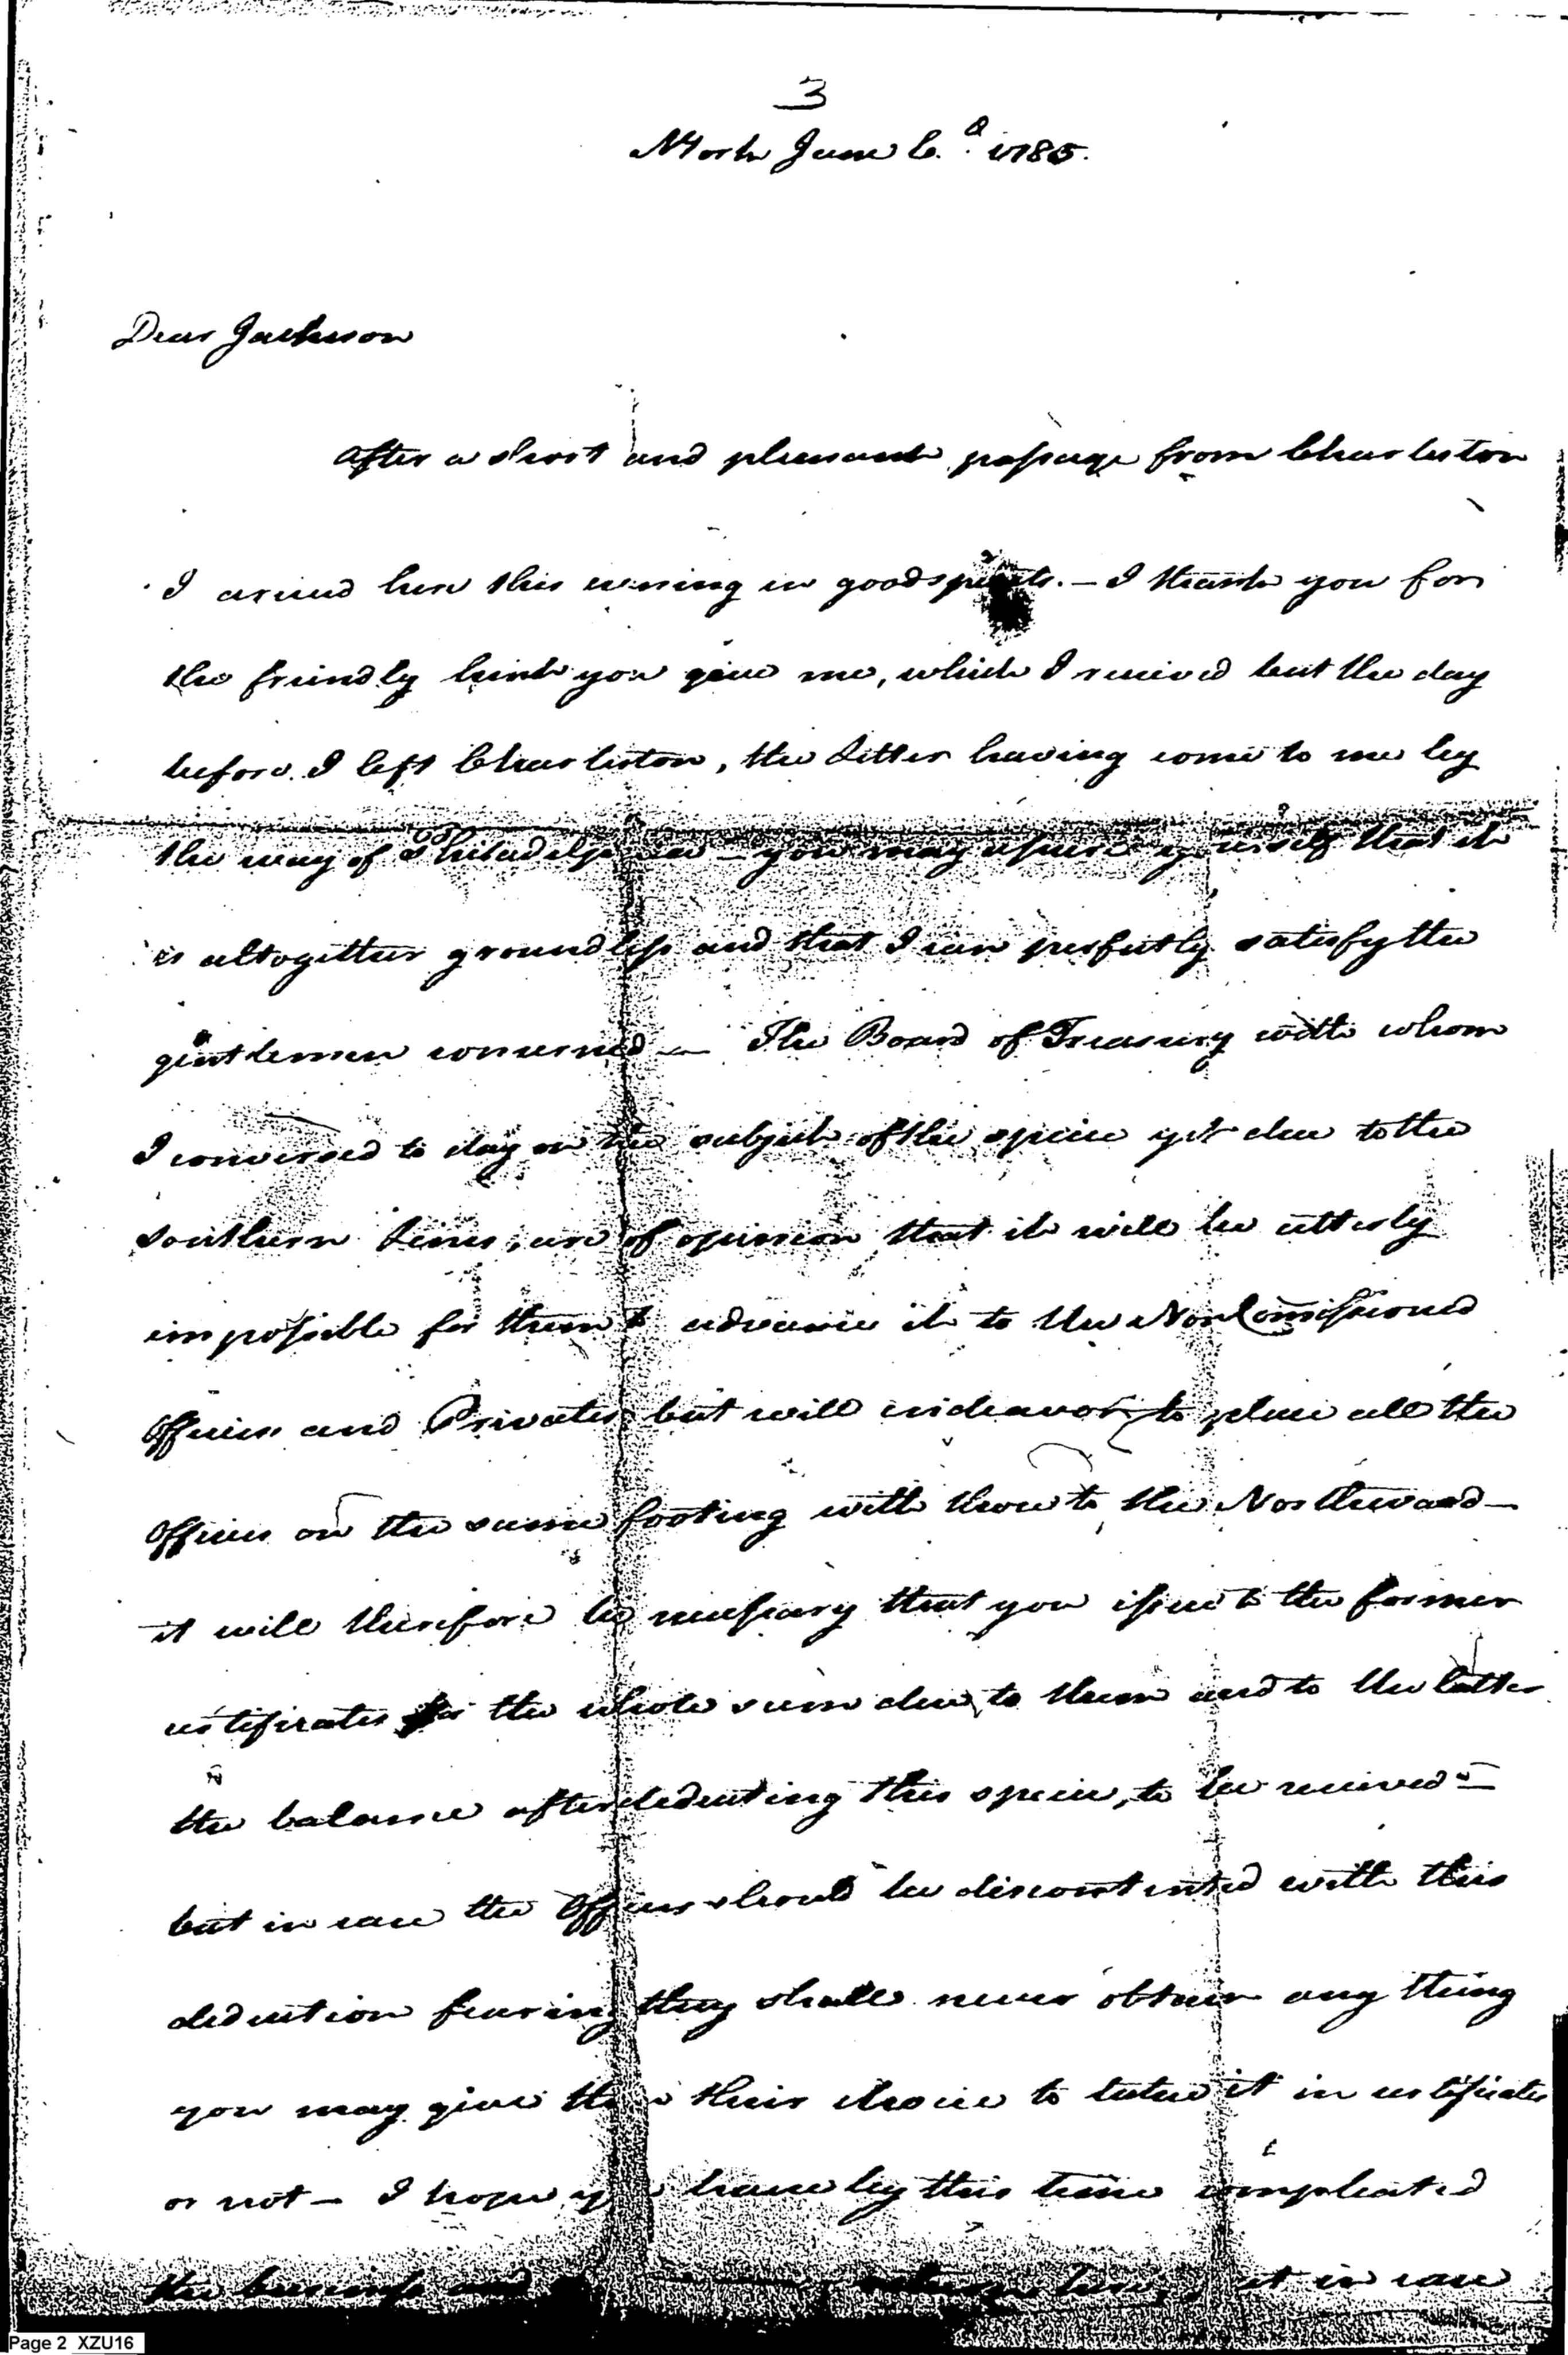 3
NYork June 6.th 1785.
Dear Jackson
After a short and pleasant passage from Charleston
I arrived here this evening in good spirits. — I thank you for
the friendly hint you give me, which I received but the day
before I left Charleston, the Letter having come to me by
the way of Philadelphia — you may assure yourself that it
is altogether groundless and that I can perfectly satisfy the
gentlemen concerned — The Board of Treasury with whom
I conversed to day on the subject of the specie yet due to the
Southern Lines, are of opinion that it will be utterly
impossible for them to advance it to the Non Commissioned
Officers and Privates but will endeavor to place all the
Officers on the same footing with those to the Northward —
it will therefore be necessary that you issue to the former
certificates for the whole sum due to them and to the latter
the balance after deducting this specie, to be received —
but in case the Officers should be discontented with this
deduction fearing they shall never obtain any thing
you may give them their choice to take it in certificates
or not — I hope you have by this time compleated
the business and it in case
Page 2 XZU16